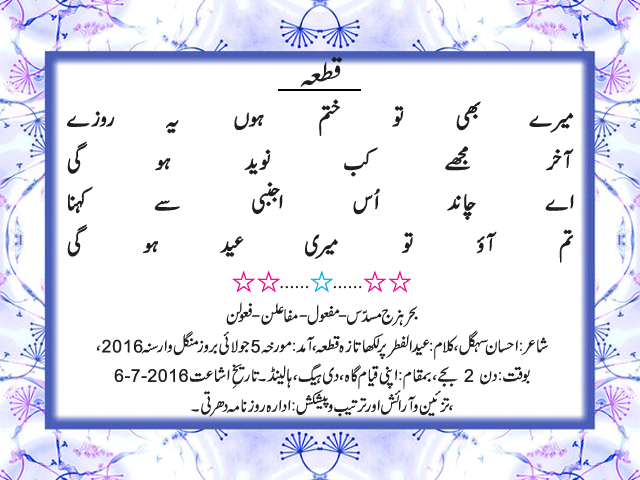 قطعہ
میرے بھی تو ختم ہوں یہ روزے
آخر مجھے کب نوید ہو گی
اے چاند اُس اجنبی سے کہنا
تم آؤ تو میری عید ہو گی
☆☆......☆......☆☆
بحر ہزج مسدّس-مفعول-مفاعلن-فعولن
شاعر:احسان سہگل،کلام:عیدالفطر پر لکھا تازہ قطعہ،آمد:مورخہ 5 جولائی بروز منگل وار سنہ 2016،
بوقت:دن 2 بجے،بمقام:اپنی قیام گاہ،دی ہیگ،ہالینڈ۔تاریخ اشاعت 2016-7-6
،تزئین و آرائش اور ترتیب و پیشکش:ادارہ روزنامہ دھرتی۔